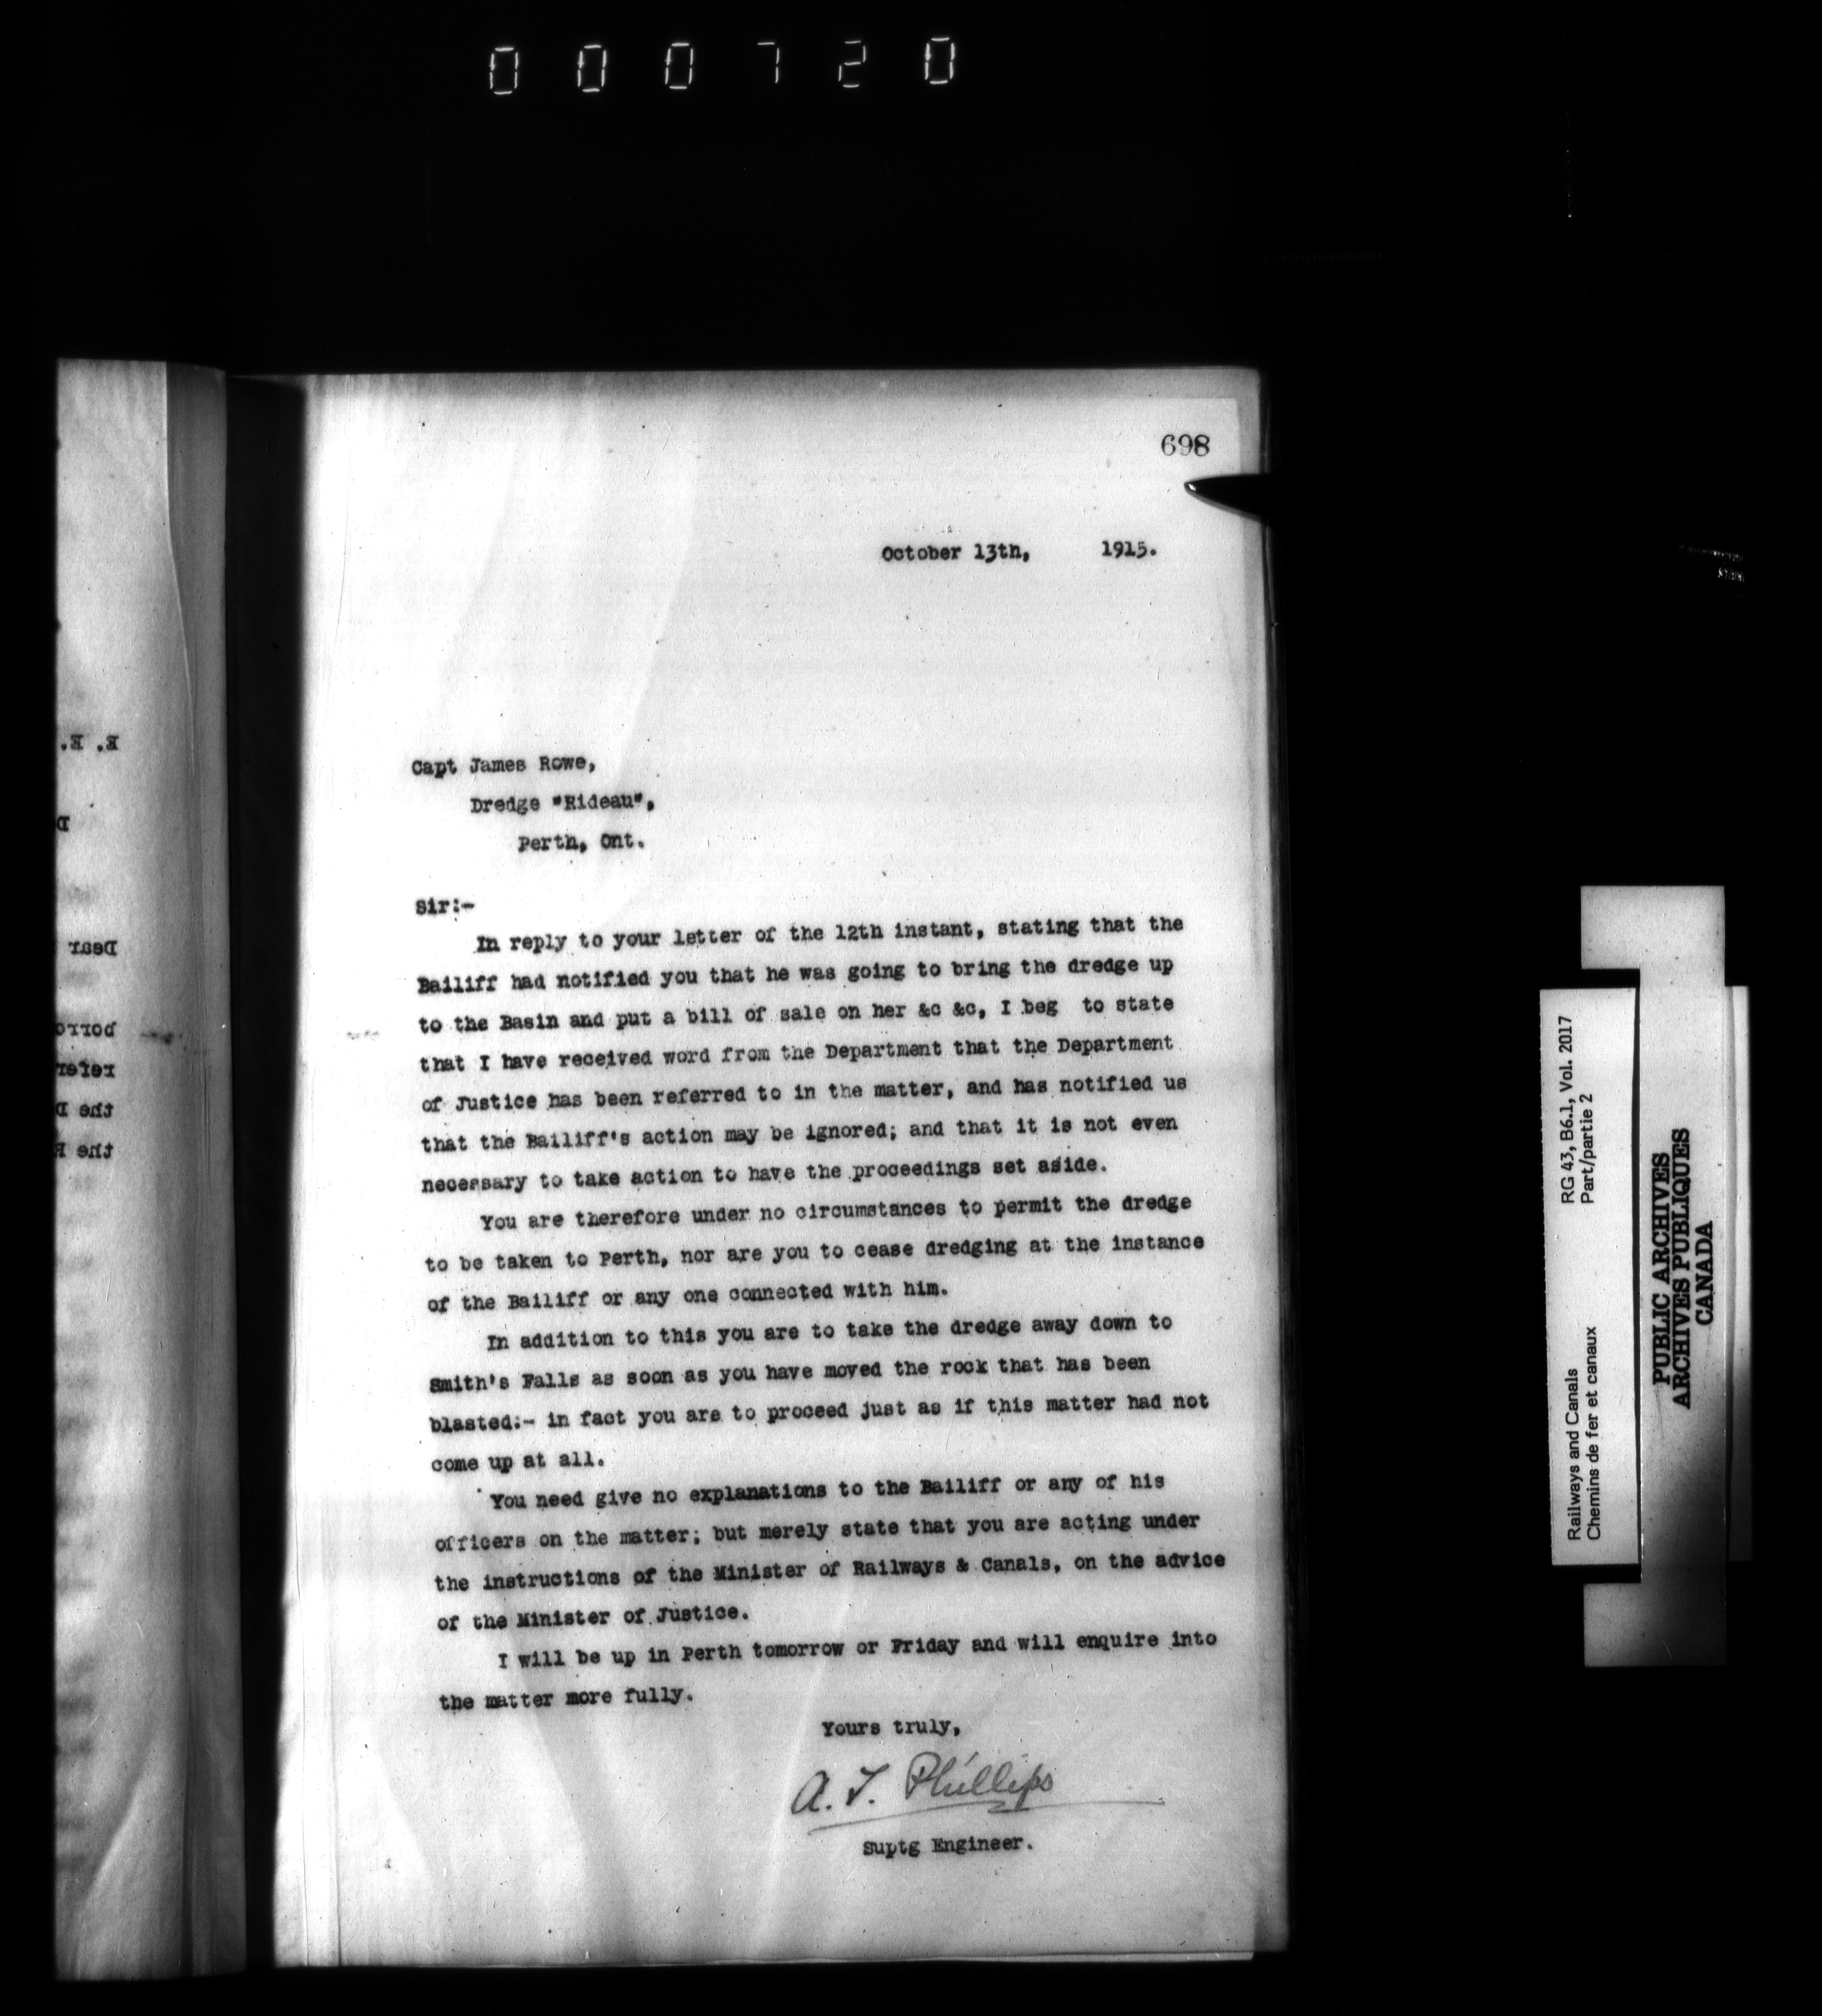 000720
698
October 13th, 1915.
Capt James Rowe,
Dredge "Rideau",
Perth, Ont.
Sir:-
In reply to your letter of the 12th instant, stating that the
Bailiff had notified you that he was going to bring the dredge up
to the Basin and put a bill of sale on her &c &c, I beg to state
that I have received word from the Department that the Department
of Justice has been referred to in the matter, and has notified us
that the Bailiff's action may be ignored; and that it is not even
necessary to take action to have the proceedings set aside.
You are therefore under no circumstances to permit the dredge
to be taken to Perth, nor are you to cease dredging at the instance
of the Bailiff or any one connected with him.
In addition to this you are to take the dredge away down to
Smith's Falls as soon as you have moved the rock that has been
blasted:- in fact you are to proceed just as if this matter had not
come up at all.
You need give no explanations to the Bailiff or any of his
officers on the matter; but merely state that you are acting under
the instructions of the Minister of Railways & Canals, on the advice
of the Minister of Justice.
I will be up in Perth tomorrow or Friday and will enquire into
the matter more fully.
Yours truly,
A. T. Phillips
Suptg Engineer.
E. E.
D
Dear
borro
refer
the D
the R
Railways and Canals RG 43, B6.1, Vol. 2017
Chemins de fer et canaux Part/partie 2
PUBLIC ARCHIVES
ARCHIVES PUBLIQUES
CANADA